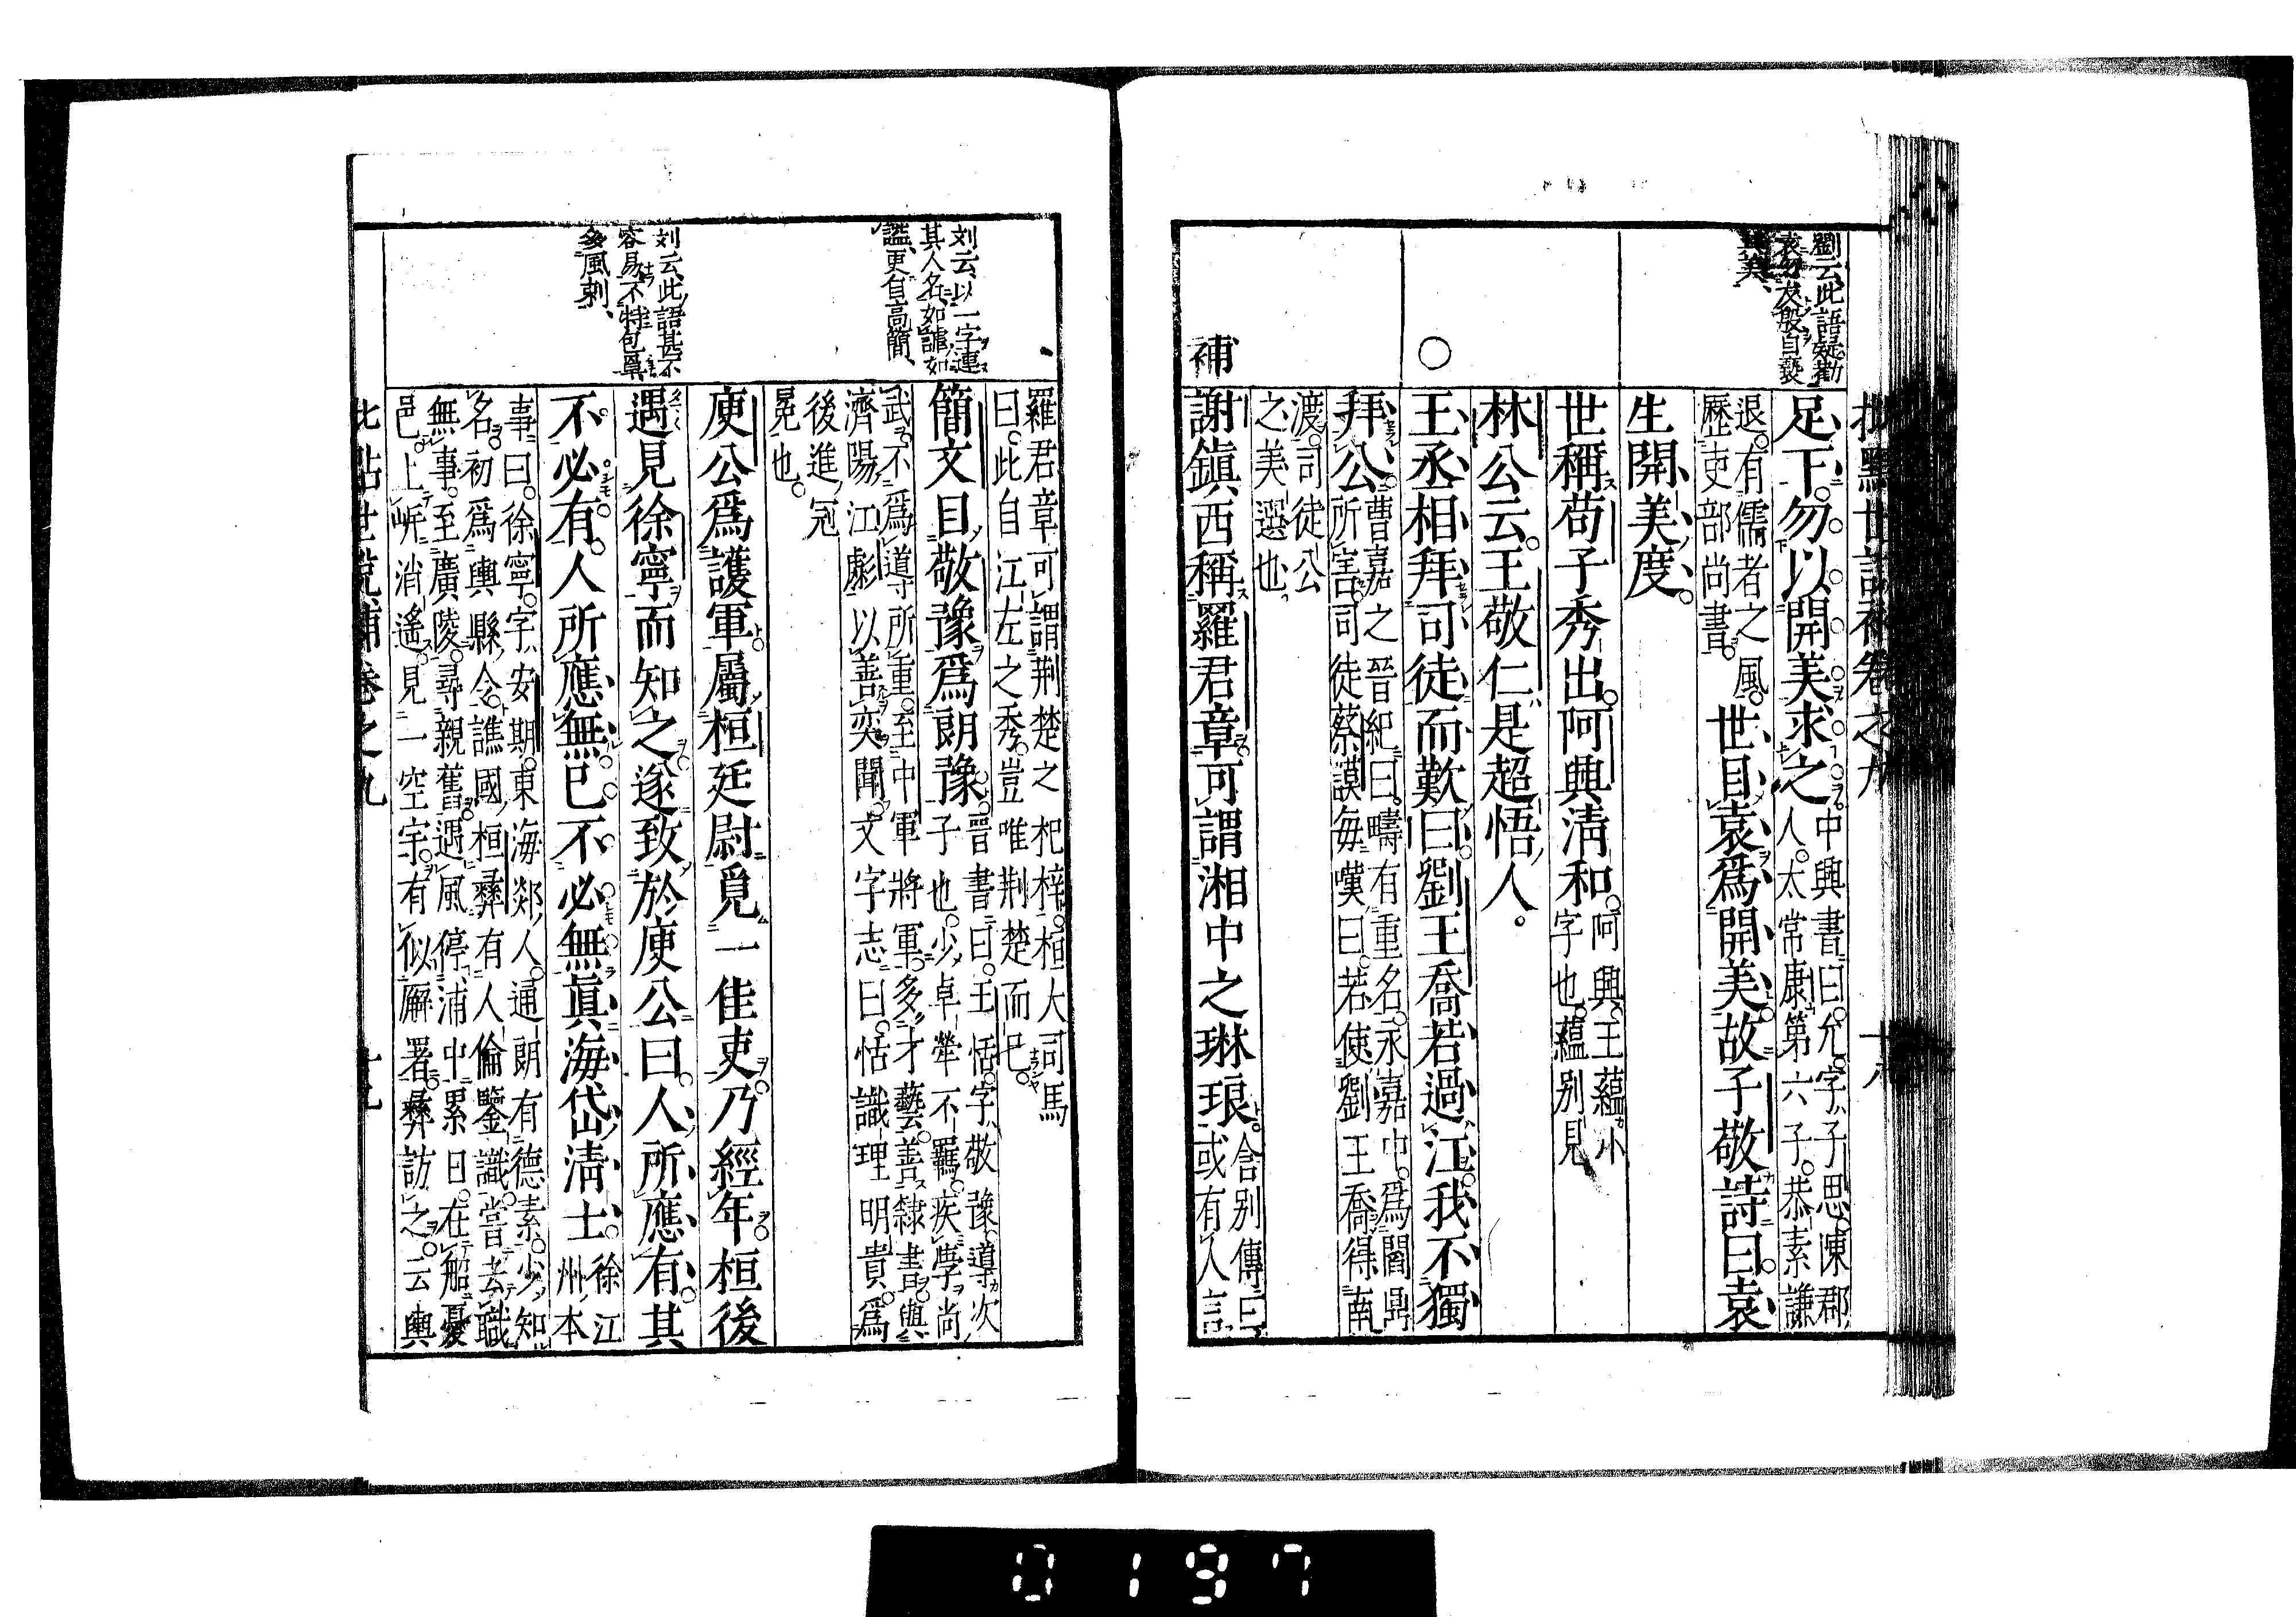 批點世說補卷之九 十八
劉云此語疑勸
袁勿友殷自褻
其美
足下勿以開美求之
中興書曰允字子思陳郡
人太常康第六子恭素謙
退有儒者之風
歷吏部尚書
世目袁爲開美故子敬詩曰袁
生開美度
世稱苟子秀出阿興清和
阿興王蘊小
字也蘊别見
林公云王敬仁是超悟人
○
王丞相拜司徒而歎曰劉王喬若過江我不獨
拜公
曹嘉之晉紀曰疇有重名永嘉中爲閻鼎
所害司徒蔡謨每嘆曰若使劉王喬得南
渡司徒公
之美選也
補
謝鎮西稱羅君章可謂湘中之琳琅
含别傳曰
或有人言
羅君章可謂荆楚之杞梓桓大司馬
曰此自江左之秀豈唯荆楚而已
刘云以一字連
其人名如謔如
謚更自高簡
簡文目敬豫爲朗豫
晉書曰王恬字敬豫導次
子也少卓犖不羈疾學尚
武不爲導所重至中軍將軍多才藝善隸書與
濟陽江彪以善奕聞文字志曰恬識理明貴爲
後進冠
冕也
庾公爲護軍屬桓廷尉覓一佳吏乃經年桓後
遇見徐寧而知之遂致於庾公曰人所應有其
刘云此語甚不
容易不特包單
多風刺
不必有人所應無已不必無眞海岱清士
徐江
州本
事曰徐寧字安期東海郯人通朗有德素少知
名初爲輿縣令譙國桓彝有人倫鑒識嘗去職
無事至廣陵尋親舊遇風停浦中累日在船憂
邑上岸消遙見一空宇有似廨署彝訪之云輿
批點世說補卷之九 十九
0197